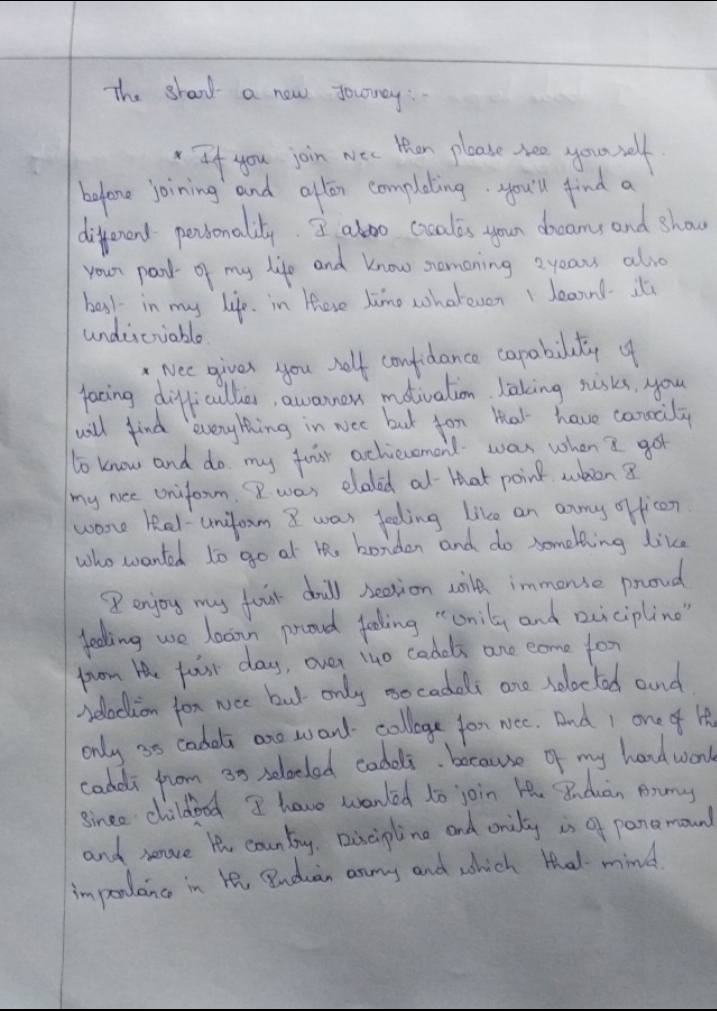 The start a new Journey:-
* If you join Ncc then please see yourself.
before joining and after completing. you'll find a
different personality. I also creates your dreams and show
your part of my life and know remening 2years also
best in my life. in these time whatever I learnt its
undiscriable.
* Ncc gives you self confidance capability of
facing difficulties, awarness motivation, taking risks, you
will find everything in Ncc but for that have carocity
to know and do. my first achievement was when I got
my Ncc uniform. I was elated at that point when I
wore that uniform I was feeling like an army officer
who wanted to go at the border and do something like
I enjoy my first drill seesion with immense proud
feeling we learn proud feeling "Unity and Discipline"
from the first day, over 140 cadets are come for
selection for Ncc but only cadets are selected and
only 35 cadets are want college for Ncc. And I one of the
cadets from 35 selected cadets. because of my hardwork
since childood I have wanted to join the Indian Army
and serve the country. Discipline and unity is of paramount
importance in the Indian army and which that mind.